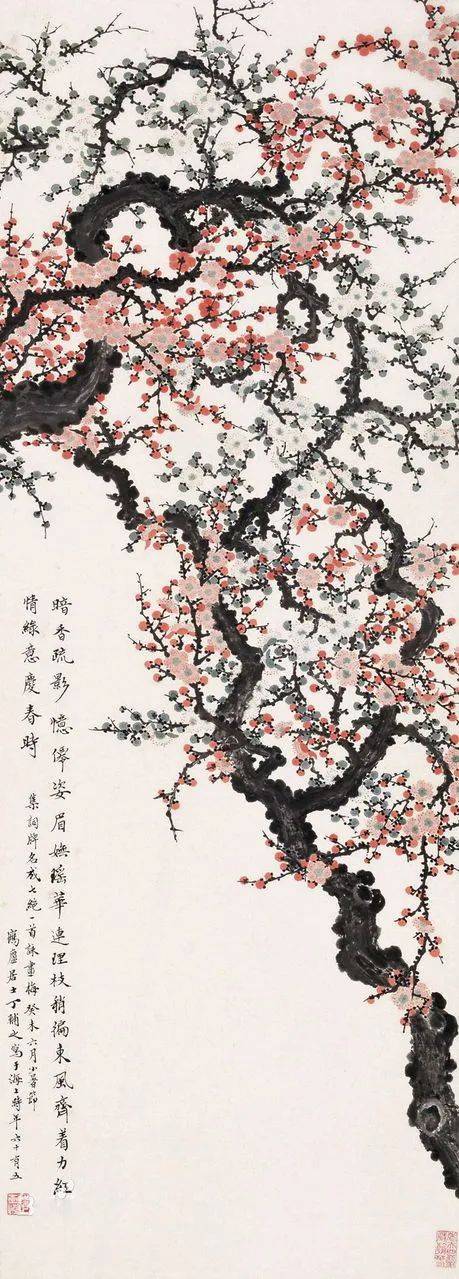 暗香疏影憶僊姿眉嫵瑤華連理枝稍徧東風齊着力紅
情綠意慶春時
集詞牌名成七絶一首詠畫梅癸未六月小暑節
鶴廬居士丁輔之寫于海上時年六十有五